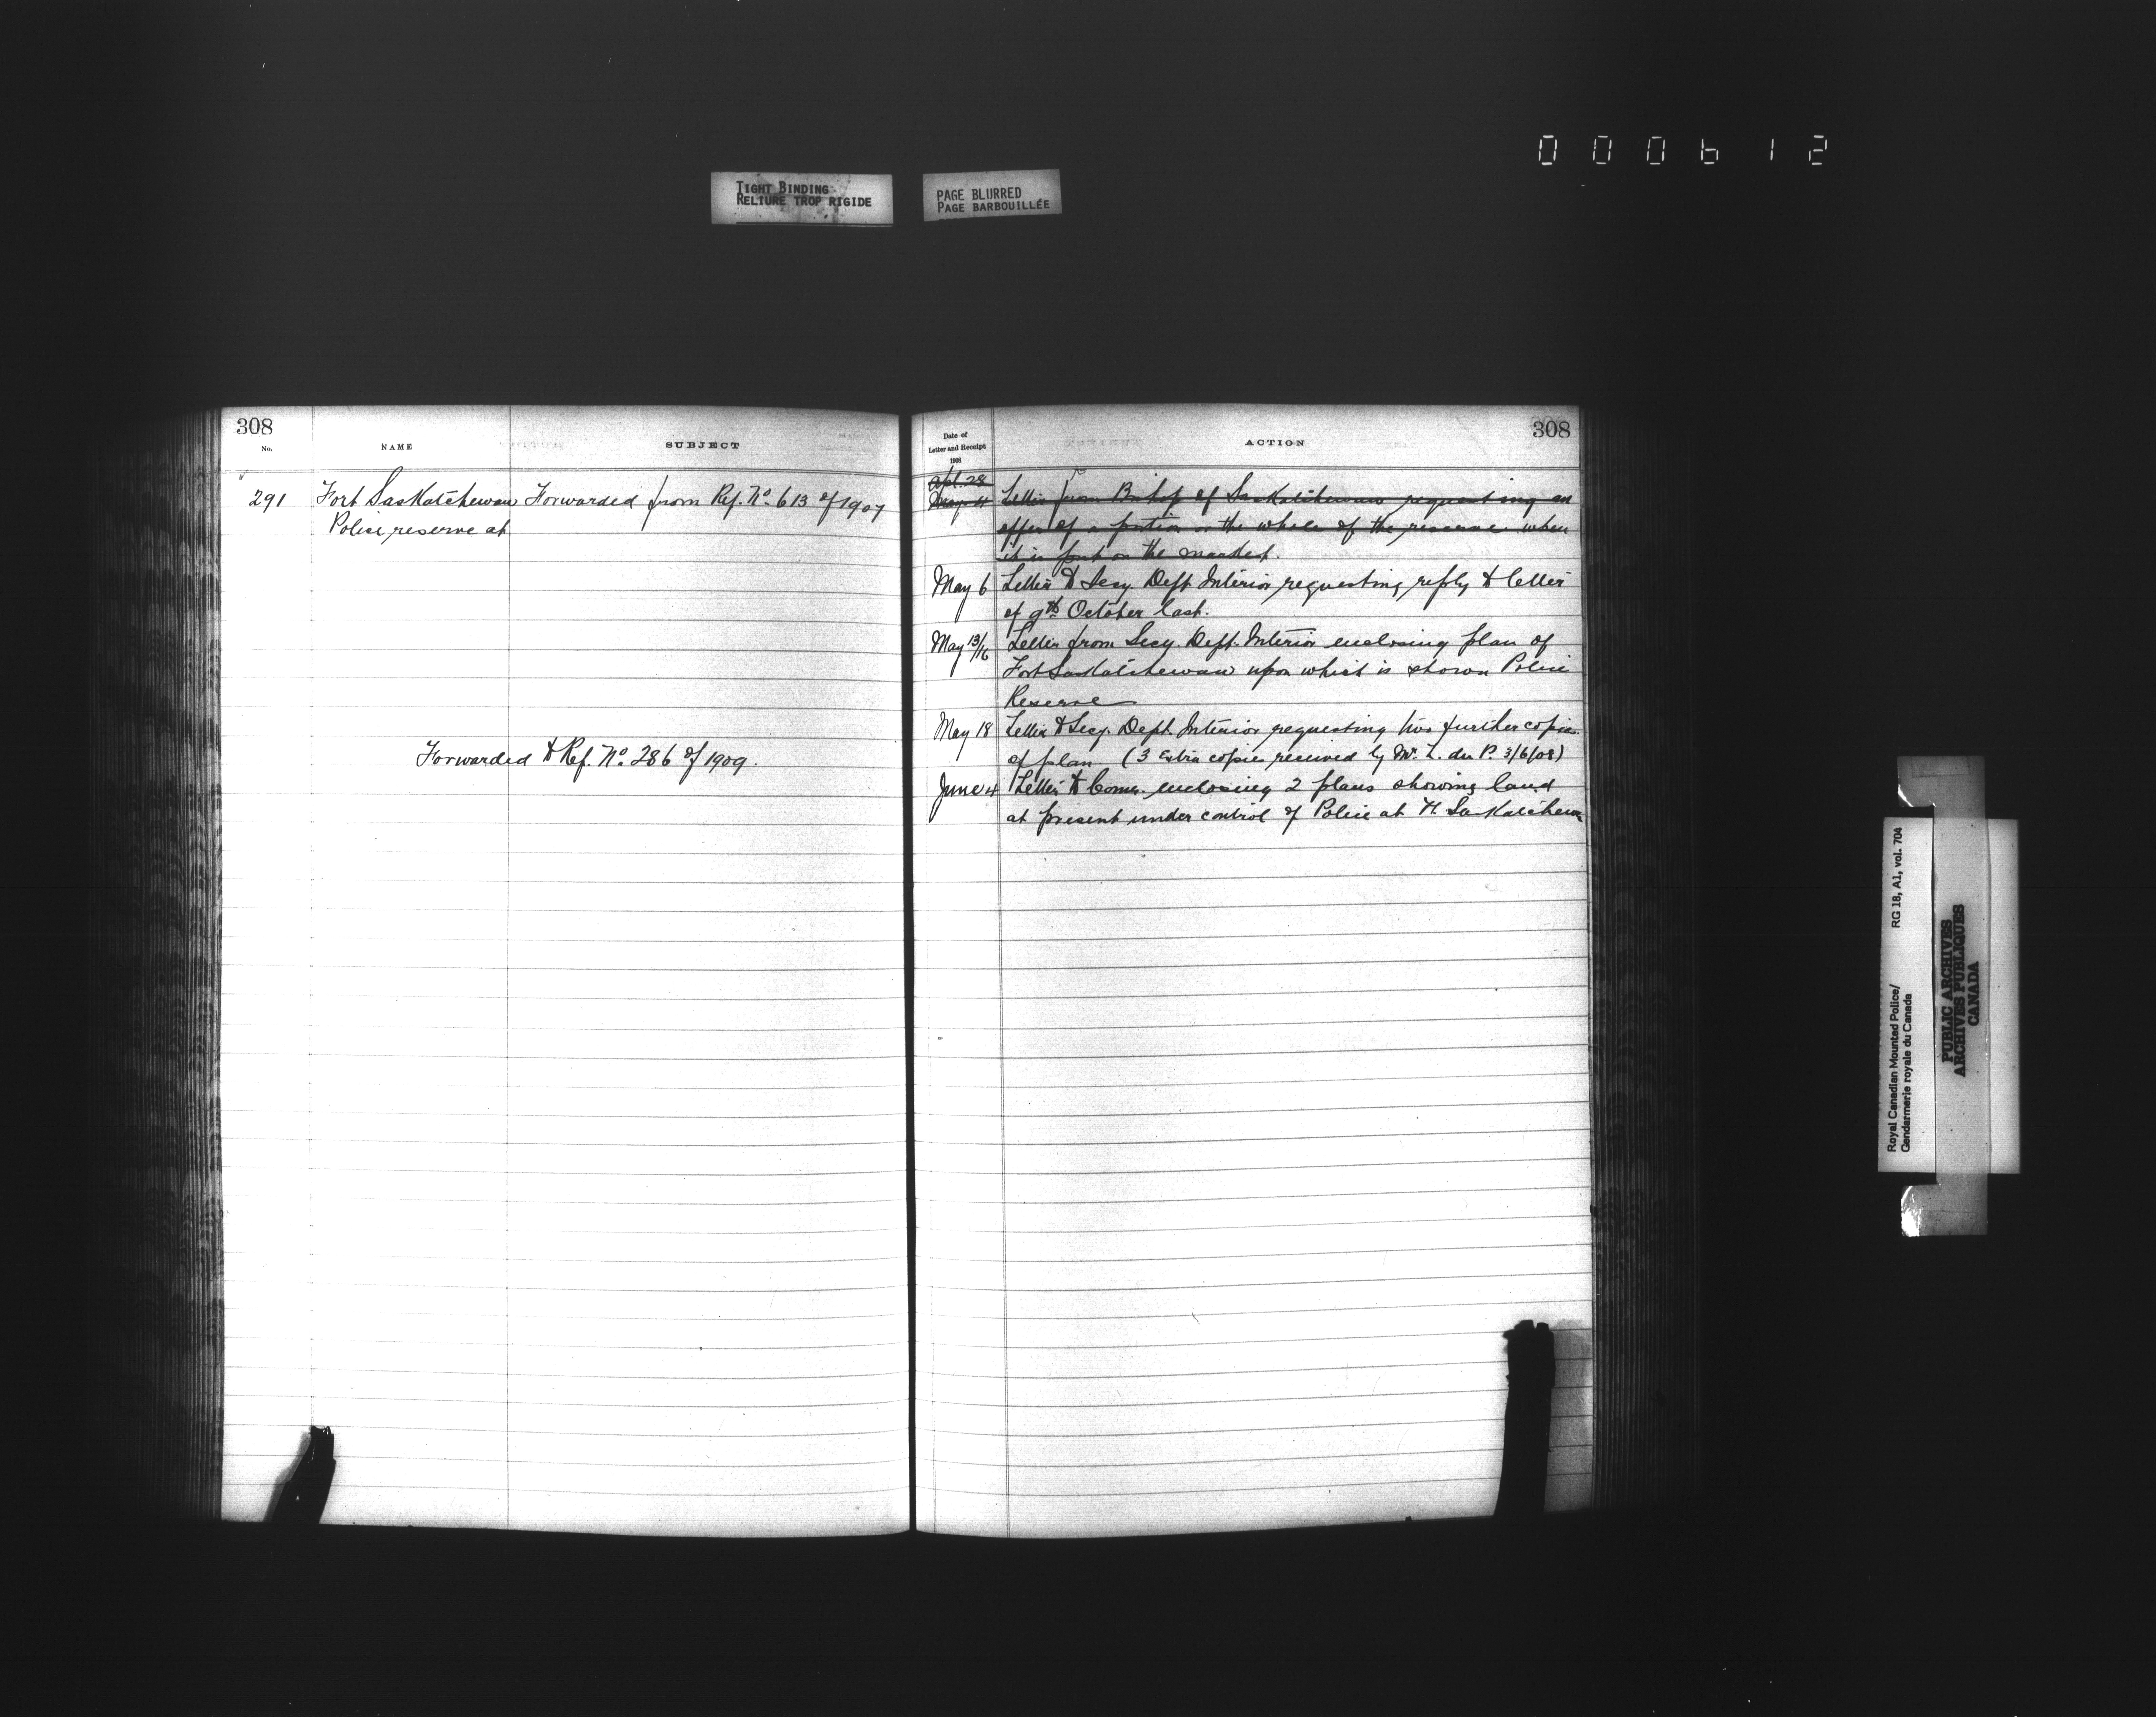 000612
TIGHT BINDING
RELIURE TROP RIGIDE
PAGE BLURRED
PAGE BARBOUILLÉE
308
No.
NAME
SUBJECT
291
Fort Saskatchewan
Police reserve at
Forwarded from Ref. No. 613 of 1907
Forwarded to Ref. No. 286 of 1909.
308
Date of
Letter and Receipt
1908
ACTION
Apl. 28
May 4
Letter from Bishop of Saskatchewan requesting an
offer of a portion or the whole of the reserve when
it is put on the market.
May 6
Letter to Secy. Dept. Interior requesting reply to letter
of 9th October last.
May 13/16
Letter from Secy. Dept. Interior enclosing plan of
Fort Saskatchewan upon which is shown Police
Reserve
May 18
Letter to Secy. Dept. Interior requesting two further copies
of plan (3 Extra copies received by Mr. L. du P. 3/6/08)
June 4
Letter to Comr. enclosing 2 plans showing land
at present under control of Police at Ft. Saskatchewan
Royal Canadian Mounted Police/
Gendarmerie royale du Canada
RG 18, A1, vol. 704
PUBLIC ARCHIVES
ARCHIVES PUBLIQUES
CANADA